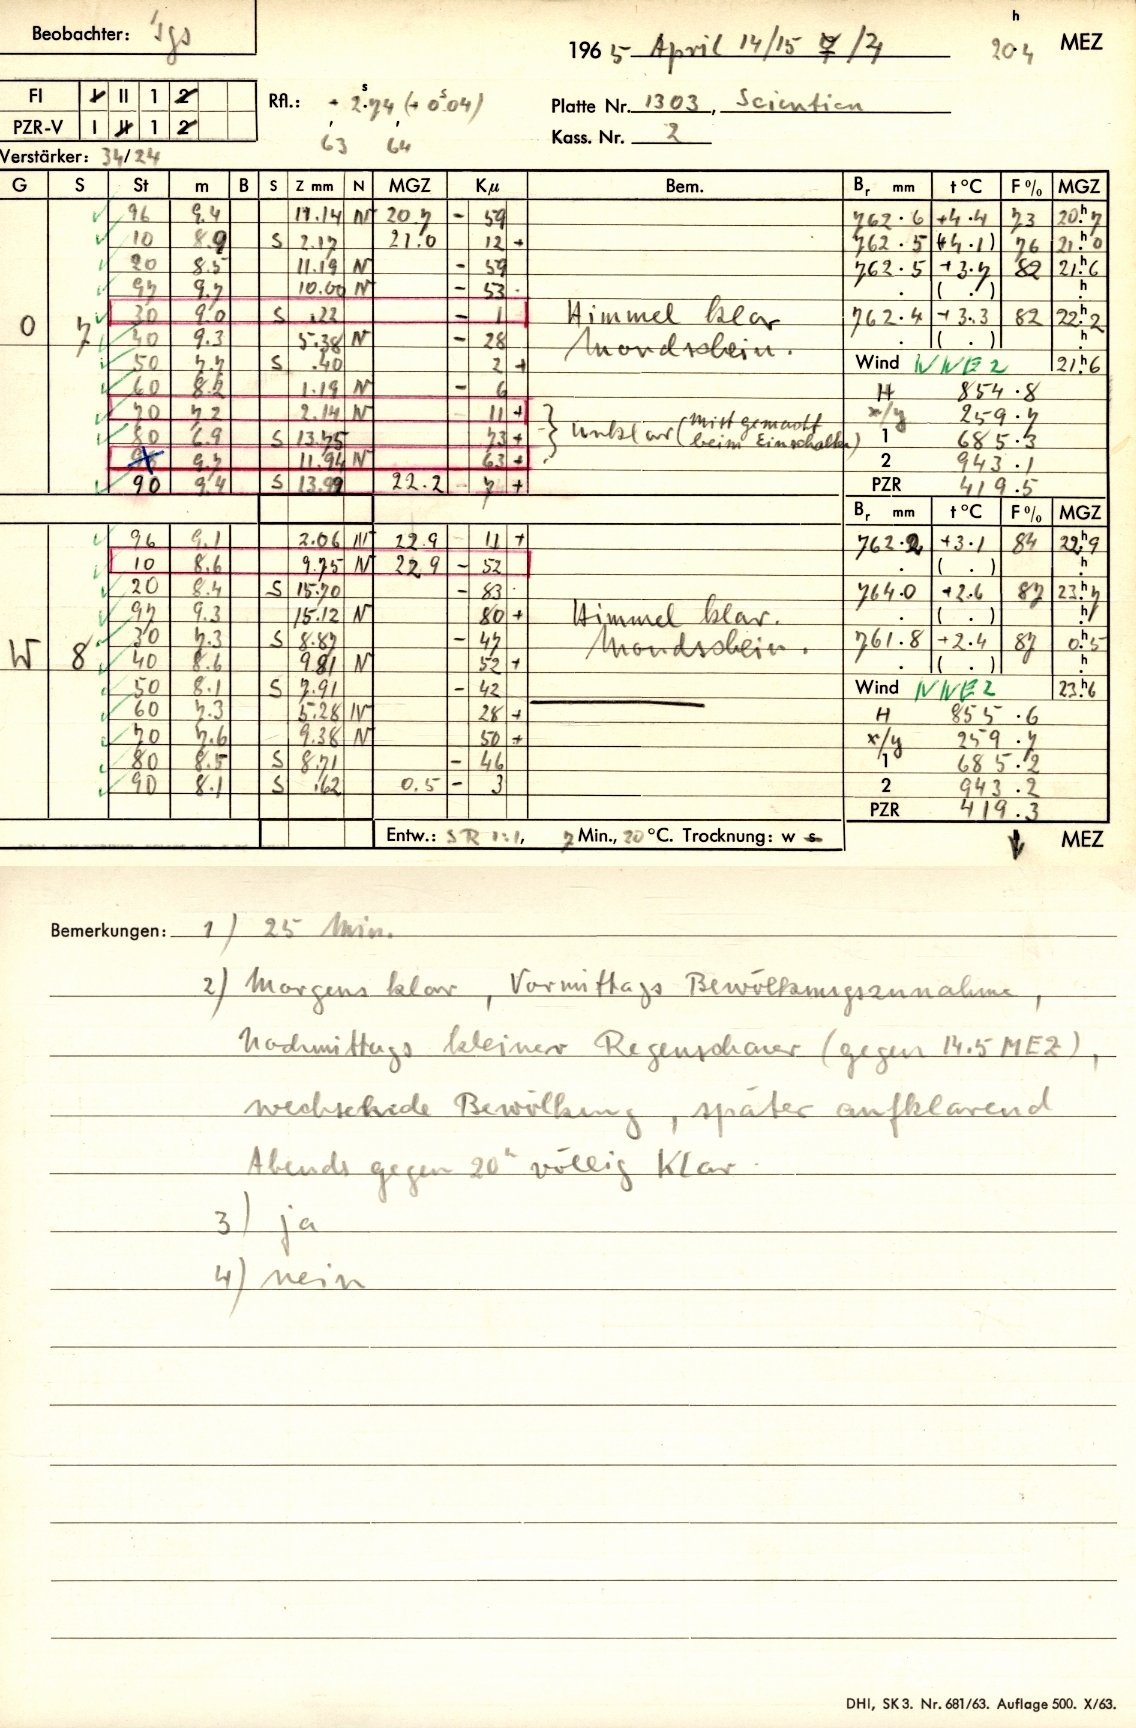 Beobachter:
h
1965 April 14/15
20.4 MEZ
FI I II 1 2
PZR-V I II 1 2
Rfl.: + 2.s74 (+ 0.s04)
63 64
Platte Nr. 1303, Scientien
Kass. Nr. 2
Verstärker: 34/24
G S St m B S Z mm N MGZ Kµ Bem. Br mm t °C F % MGZ
96 9.4 11.14 N 20.7 - 59 762.6 +4.4 73 20h7
10 8.9 S 2.17 21.0 12 + 762.5 (+4.1) 76 21h0
20 8.5 11.19 N - 59 762.5 +3.7 82 21h6
97 9.7 10.00 N - 53 . ( . ) h
O 7 30 9.0 S .22 - 1 Himmel klar 762.4 +3.3 82 22h2
40 9.3 5.38 N - 28 Mondschein. . ( . ) h
50 7.7 S .40 2 + Wind NNE 2 21h6
60 8.2 1.19 N - 6 H 854.8
70 7.2 2.14 N 11 + x/y 259.7
80 6.9 S 13.75 73 + unklar (Mist gemacht beim Einschalten) 1 685.3
9.7 11.94 N 63 + 2 943.1
90 9.4 S 13.99 22.2 - 7 + PZR 419.5
Br mm t °C F % MGZ
96 9.1 2.06 N 22.9 11 + 762.2 +3.1 84 22h9
10 8.6 9.75 N 22.9 - 52 . ( . )
20 8.4 S 15.70 - 83 764.0 +2.6 87 23h7
97 9.3 15.12 N 80 + Himmel klar. . ( . ) h
W 8 30 7.3 S 8.87 - 47 Mondschein. 761.8 +2.4 87 0h5
40 8.6 9.81 N 52 + . ( . ) h
50 8.1 S 7.91 - 42 Wind NNE 2 23h6
60 7.3 5.28 N 28 + H 855.6
70 7.6 9.38 N 50 + x/y 259.7
80 8.5 S 8.71 - 46 1 685.2
90 8.1 S .62 0.5 - 3 2 943.2
PZR 419.3
Entw.: SR 1:1, 7 Min., 20 °C. Trocknung: w s
MEZ
Bemerkungen: 1) 25 Min.
2) Morgens klar, Vormittags Bewölkungszunahme,
Nachmittags kleiner Regenschauer (gegen 14.5 MEZ),
wechselnde Bewölkung, später aufklarend
Abends gegen 20h völlig Klar.
3) ja
4) nein
DHI, SK 3. Nr. 681/63. Auflage 500. X/63.